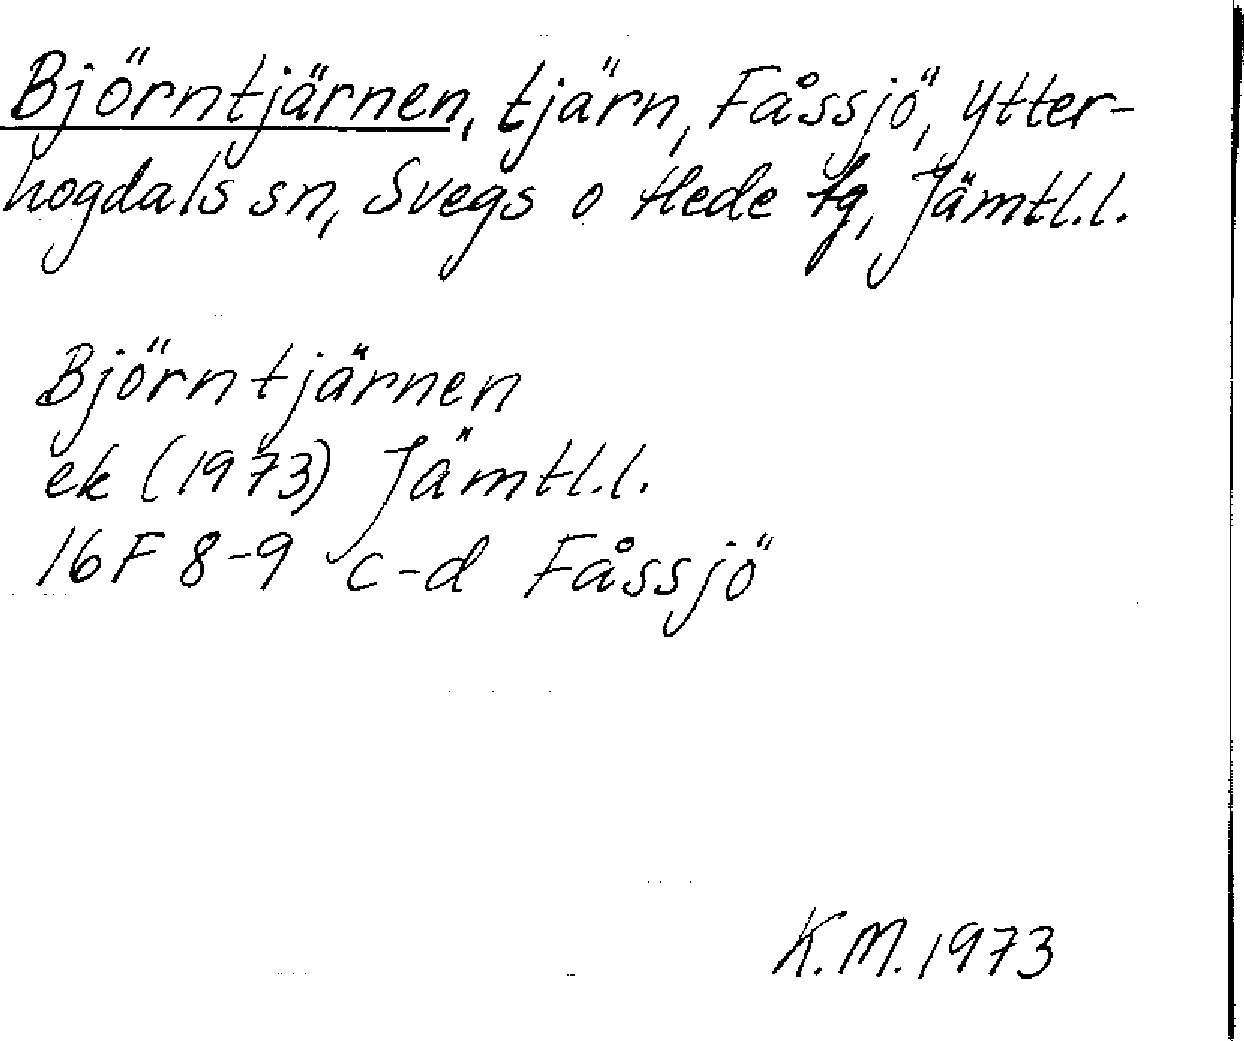 Björntjärnen, tjärn, Fåssjö, Ytter-
hogdals sn, Svegs o Hede tg, Jämtl.l.
Björntjärnen
ek (1973) Jämtl.l.
16F 8-9 c-d Fåssjö
K.M. 1973